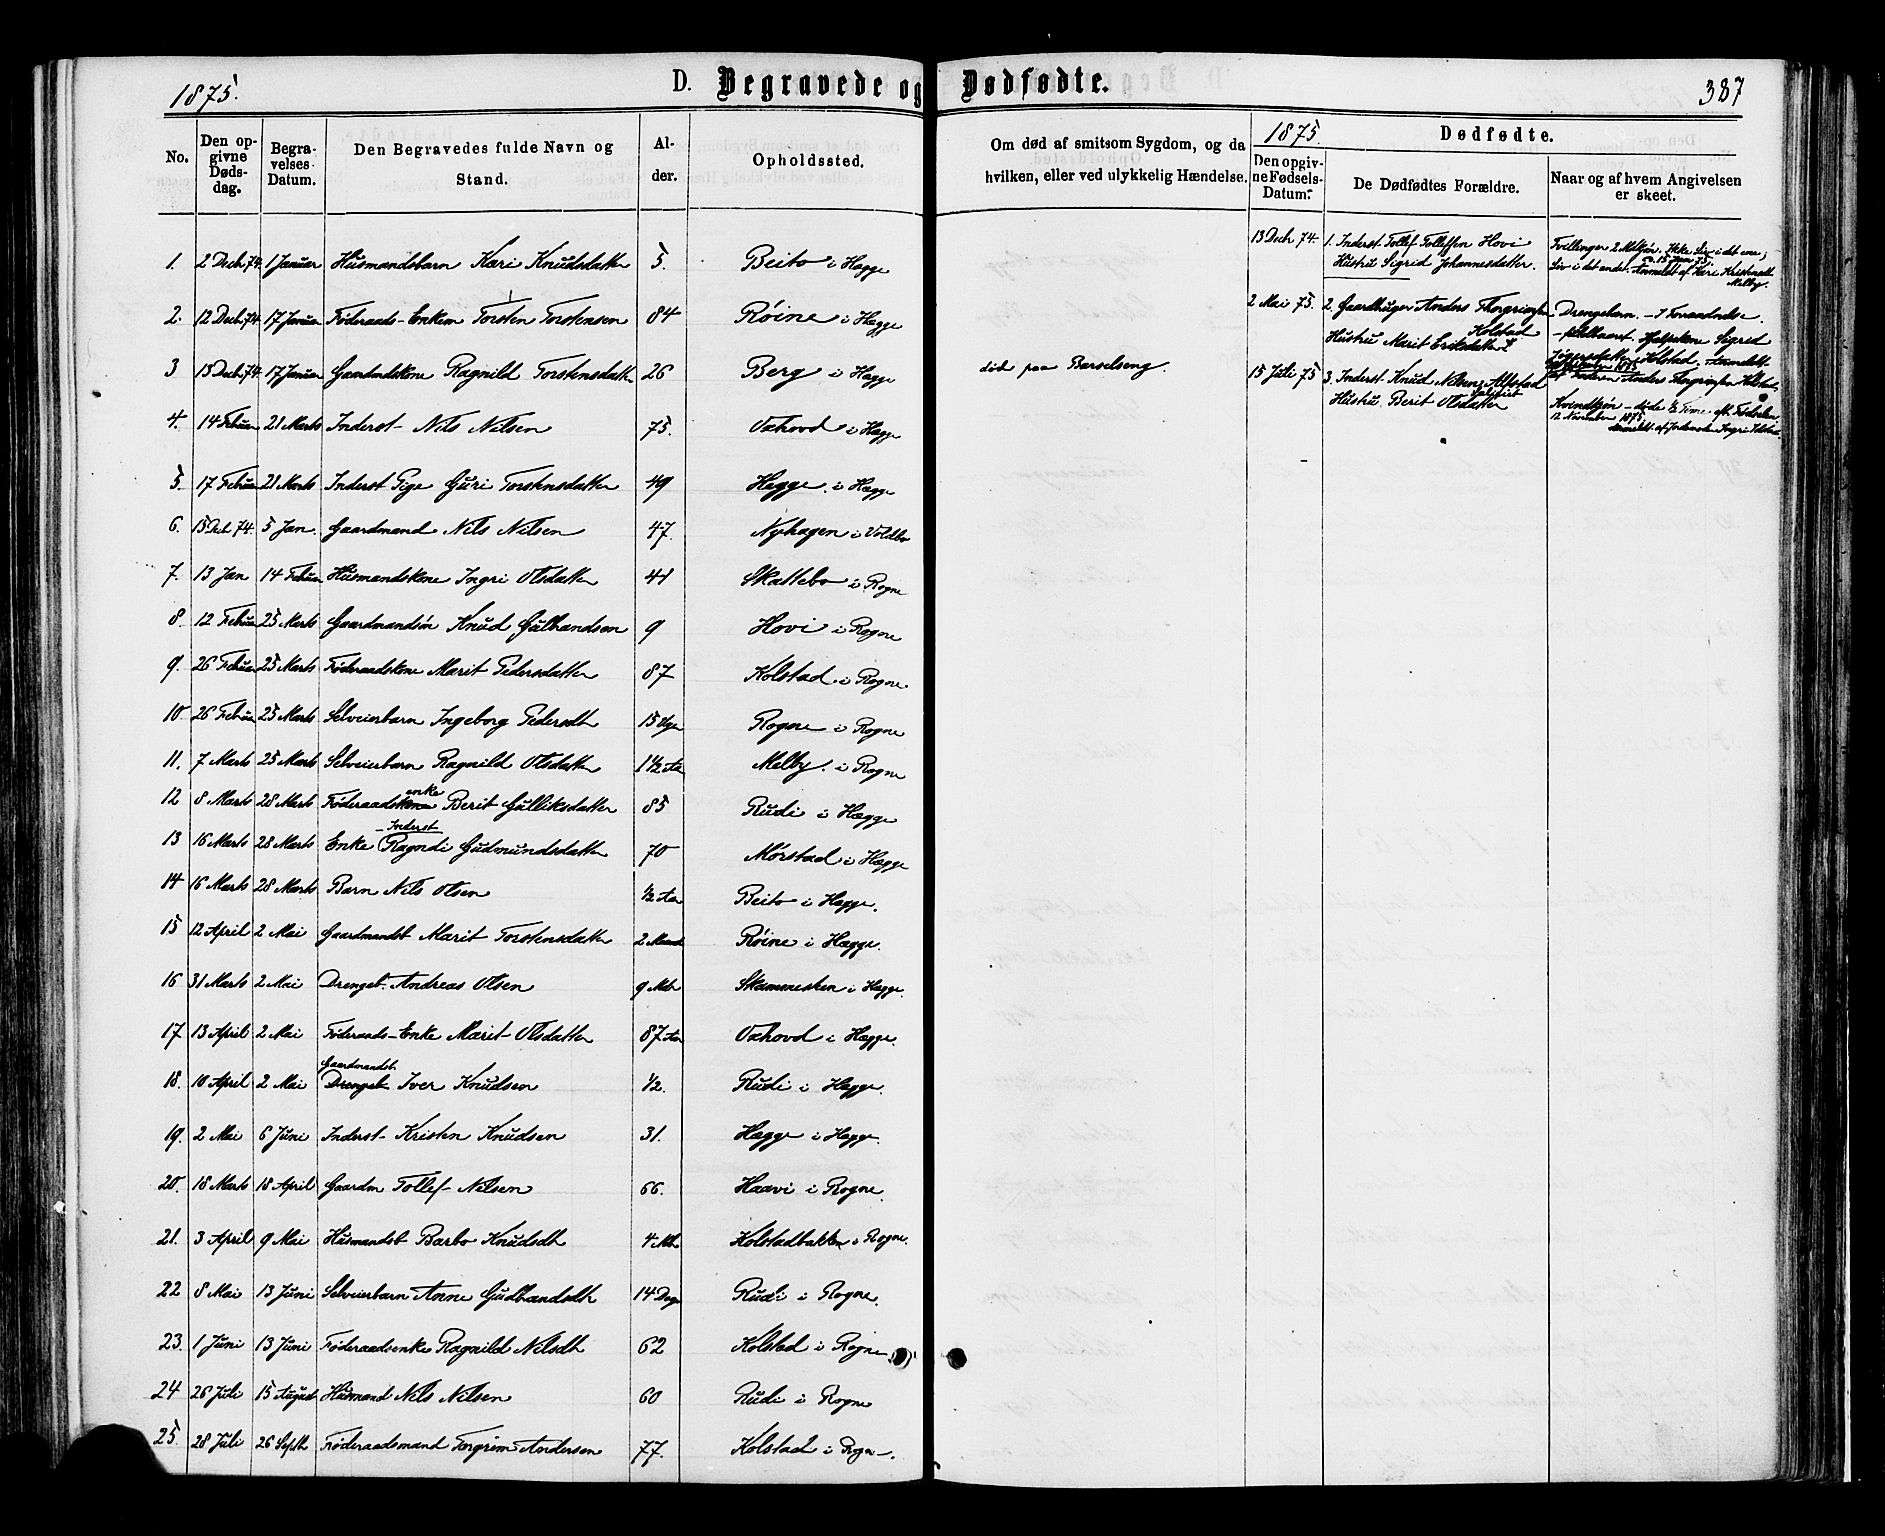 1875.
D. Begravede og Dødfødte.
387
No. | Den opgivne Dødsdag. | Begravelses Datum. | Den Begravedes fulde Navn og Stand. | Alder. | Opholdssted. | Om død af smitsom Sygdom, og da hvilken, eller ved ulykkelig Hændelse.
1. 2 Decb. 74. 1 Januar Husmandsbarn Kari Knudsdatter 5. Beito i Hegge
2. 12 Decb. 74 17 Januar Føderaads-Enkem Torsten Torstensen 84 Røine i Hægge
3 13 Decb. 74. 17 Januar Gaardmdskone Ragnild Torstensdatter 26 Berg i Hægge død paa Barselseng.
4. 14 Februar 21 Marts Inderst Nils Nilsen 75. Oxhovd i Hægge
5. 17 Februar 21 Marts Inderst Pige Guri Torstensdatter 49 Hegge i Hægge
6. 15 Decb 74. 5 Jan. Gaardmand Nils Nilsen 47. Nyhagen i Voldbo
7. 13 Jan 14 Februar Husmandskone Ingri Olsdatter 41 Skattebo i Rogne
8. 12 Februar 25 Marts Gaardmandsøn Knud Gulbandsen 9 Hovi i Rogne
9. 26 Februar 25 Marts Føderaadskone Marit Pedersdatter 87 Kolstad i Rogne
10 26 Februar 25 Marts Selveierbarn Ingeborg Pedersdtr 15 Uger Rogne i Rogne
11. 7 Marts 25 Marts Selveierbarn Ragnild Olsdatter 1½ Aar Melby i Rogne
12 8 Marts 28 Marts Føderaadskone enke Berit Gulliksdatter 85 Rudi i Hægge
13 16 Marts 28 Marts Enke Inderst Ragndi Gudmundsdatter 70 Mørstad i Hægge
14 16 Marts 28 Marts Barn Nils Olsen ½ Aar Beito i Hægge.
15 12 April 2 Mai Gaardmandsb Marit Torstensdatter 2 Maaned Røine i Hægge.
16 31 Marts 2 Mai Drengeb. Andreas Olsen 9 Mdr Skammesken i Hægge.
17. 13 April 2 Mai Føderaads-Enke Marit Olsdatter 87 Aar Oxhovd i Hægge.
18. 10 April 2 Mai Gaardmandsb Drengeb Iver Knudsen ½. Rudi i Hægge.
19. 2 Mai 6 Juni Inderst Kristen Knudsen 31. Hægge i Hægge.
20. 18 Marts 18 April Gaardm Tollef Nilsen 66. Haavi i Rogne.
21. 3 April 9 Mai Husmandsb Barbo Knudsdtr 4 Mdr Kolstadbakken i Rogne.
22 8 Mai 13 Juni Selveierbarn Anne Gudbandsdtr 14 Dage Rudi i Rogne.
23. 1 Juni 13 Juni Føderaadsenke Ragnild Nilsdtr 62 Kolstad i Rogne
24 26 Juli 15 August Husmand Nils Nilsen 60 Rudi i Rogne
25. 28 Juli 26 Septbr Føderaadsmand Torgrim Andersen 77. Kolstad i Rogne.
1875. Dødfødte.
Den opgivne Fødsels-Datum. | De Dødfødtes Forældre. | Naar og af hvem Angivelsen er skeet.
13 Decb. 74. 1. Inderst. Tollef Tolleffsen Hovi
Hustru Sigrid Johannesdatter.
Tvillinger 2 Mdkjøn. Ikke Liv i det ene;
15 Jan 75.
Liv i det andet. Anmeldt af Kari Kristensdtr
Melby.
2 Mai 75. 2. Gaardbruger Anders Thorgrimsen
Kolstad
Hustru Marit Eriksdatter
Drengebarn.
Sigrid
Kolstad. Anmeldt
af Faderen Anders Thorgrimsen Kolstad.
15 Juli 75 3. Inderst. Knud Nilsen Alfstad
Hustru Berit Olsdatter
Kvindkjøn – døde ½ Time eft. Fødselen
12 November 1875
Anmeldt af Jordemoder Ingri